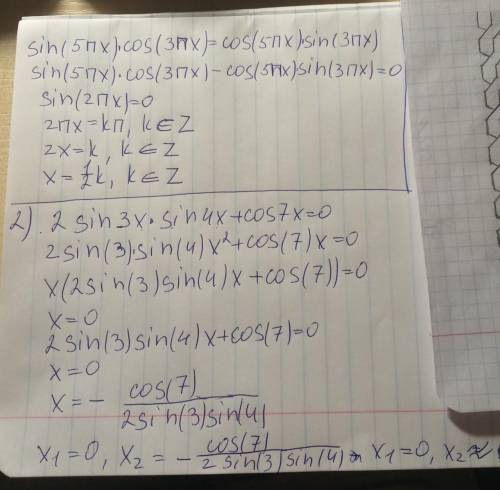 sin(5πx)·cos(3πx)=cos(5πx)sin(3πx)
sin(5πx)·cos(3πx)-cos(5πx)sin(3πx)=0
sin(2πx)=0
2πx=kπ, k∈Z
2x=k, k∈Z
x=½k, k∈Z
2). 2 sin3x·sin4x+cos7x=0
2sin(3)·sin(4)x²+cos(7)x=0
x(2sin(3)sin(4)x+cos(7))=0
x=0
2sin(3)sin(4)x+cos(7)=0
x=0
x=- cos(7)/2sin(3)sin(4)
x₁=0, x₂=- cos(7)/2sin(3)sin(4) x₁=0, x₂≈